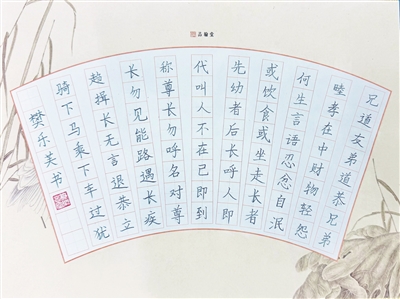 品翰堂
兄道友弟道恭兄弟
睦孝在中财物轻怨
何生言语忍忿自泯
或饮食或坐走长者
先幼者后长呼人即
代叫人不在己即到
称尊长勿呼名对尊
长勿见能路遇长疾
趋揖长无言退恭立
骑下马乘下车过犹
樊乐芙书